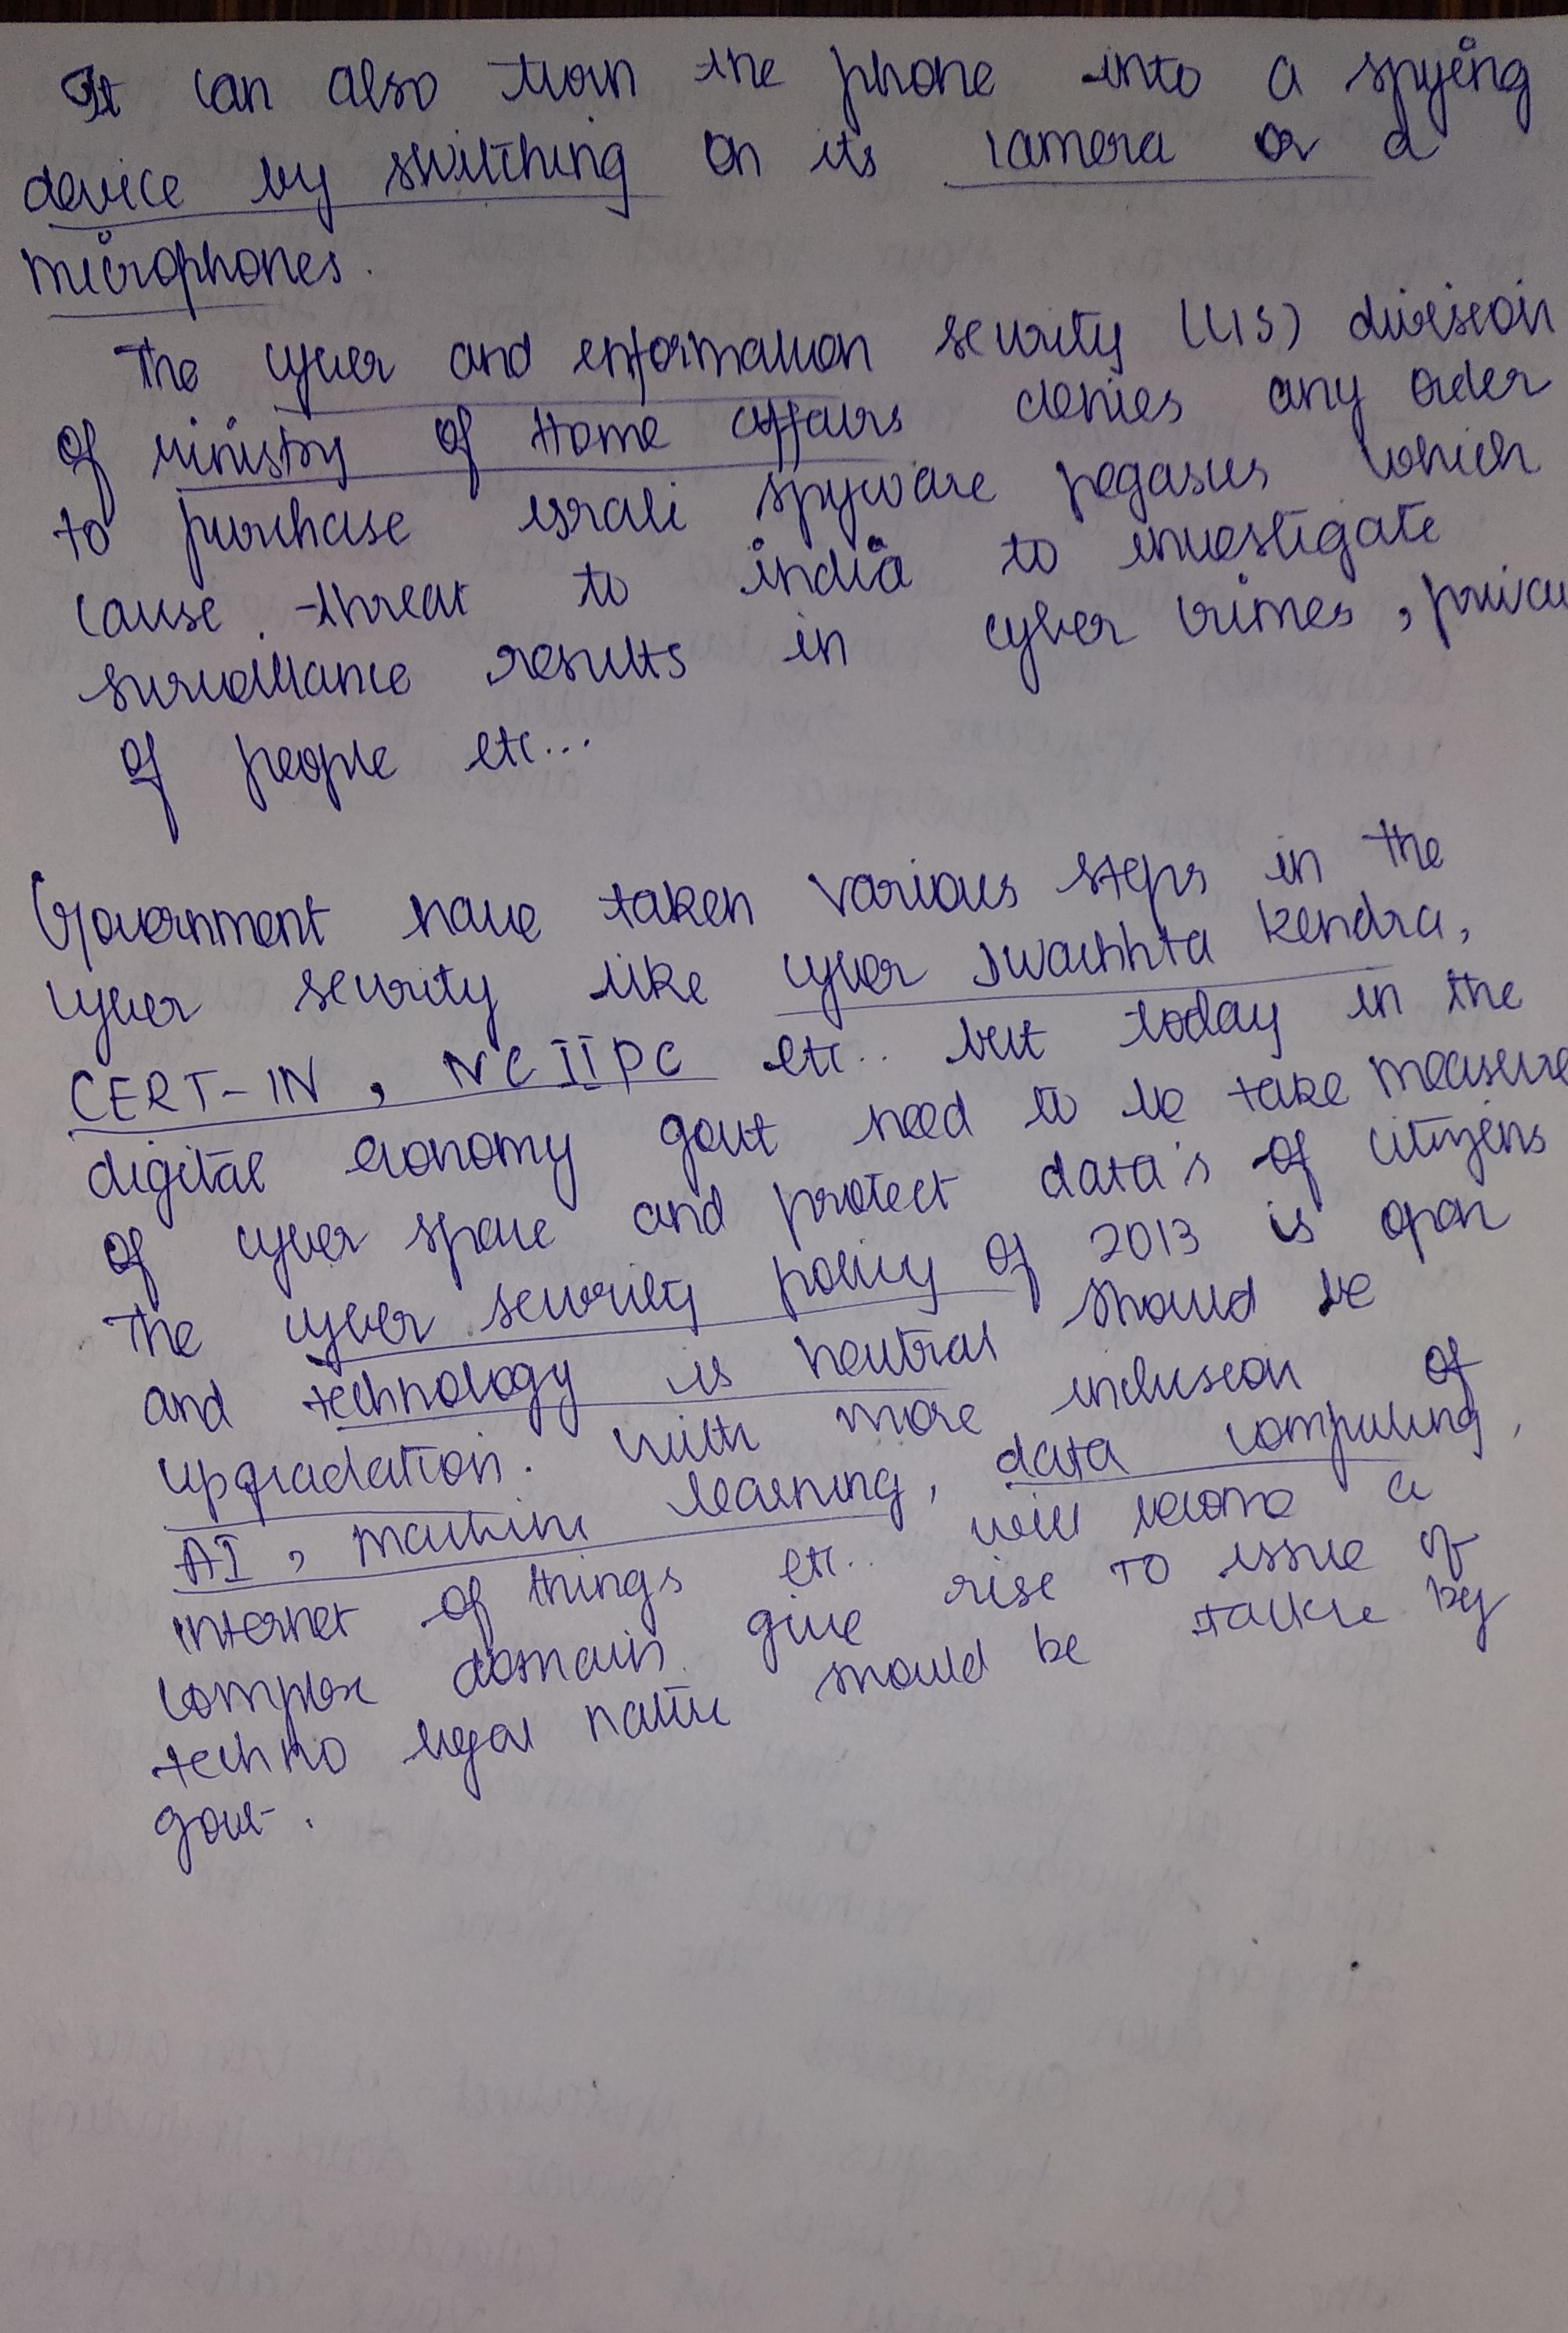 It can also turn the phone into a spying
device by switching on its camera or a
microphones.
The cyber and information security (CIS) division
of ministry of Home affairs denies any order
to purchase israli spyware pegasus which
cause threat to india to investigate
surveillance results in cyber crimes, privacy
of people etc...
Government have taken various steps in the
cyber security like cyber swachhta kendra,
CERT-IN, NCIIPC etc.. but today in the
digital economy govt need to be take measure
of cyber space and protect data's of citizens
The cyber security policy of 2013 is open
and technology is neutral should be
upgradation. with more inclusion of
AI, machine learning, data computing,
internet of things etc.. will become a
complex domain give rise to issue of
techno legal natue should be tackle by
govt.